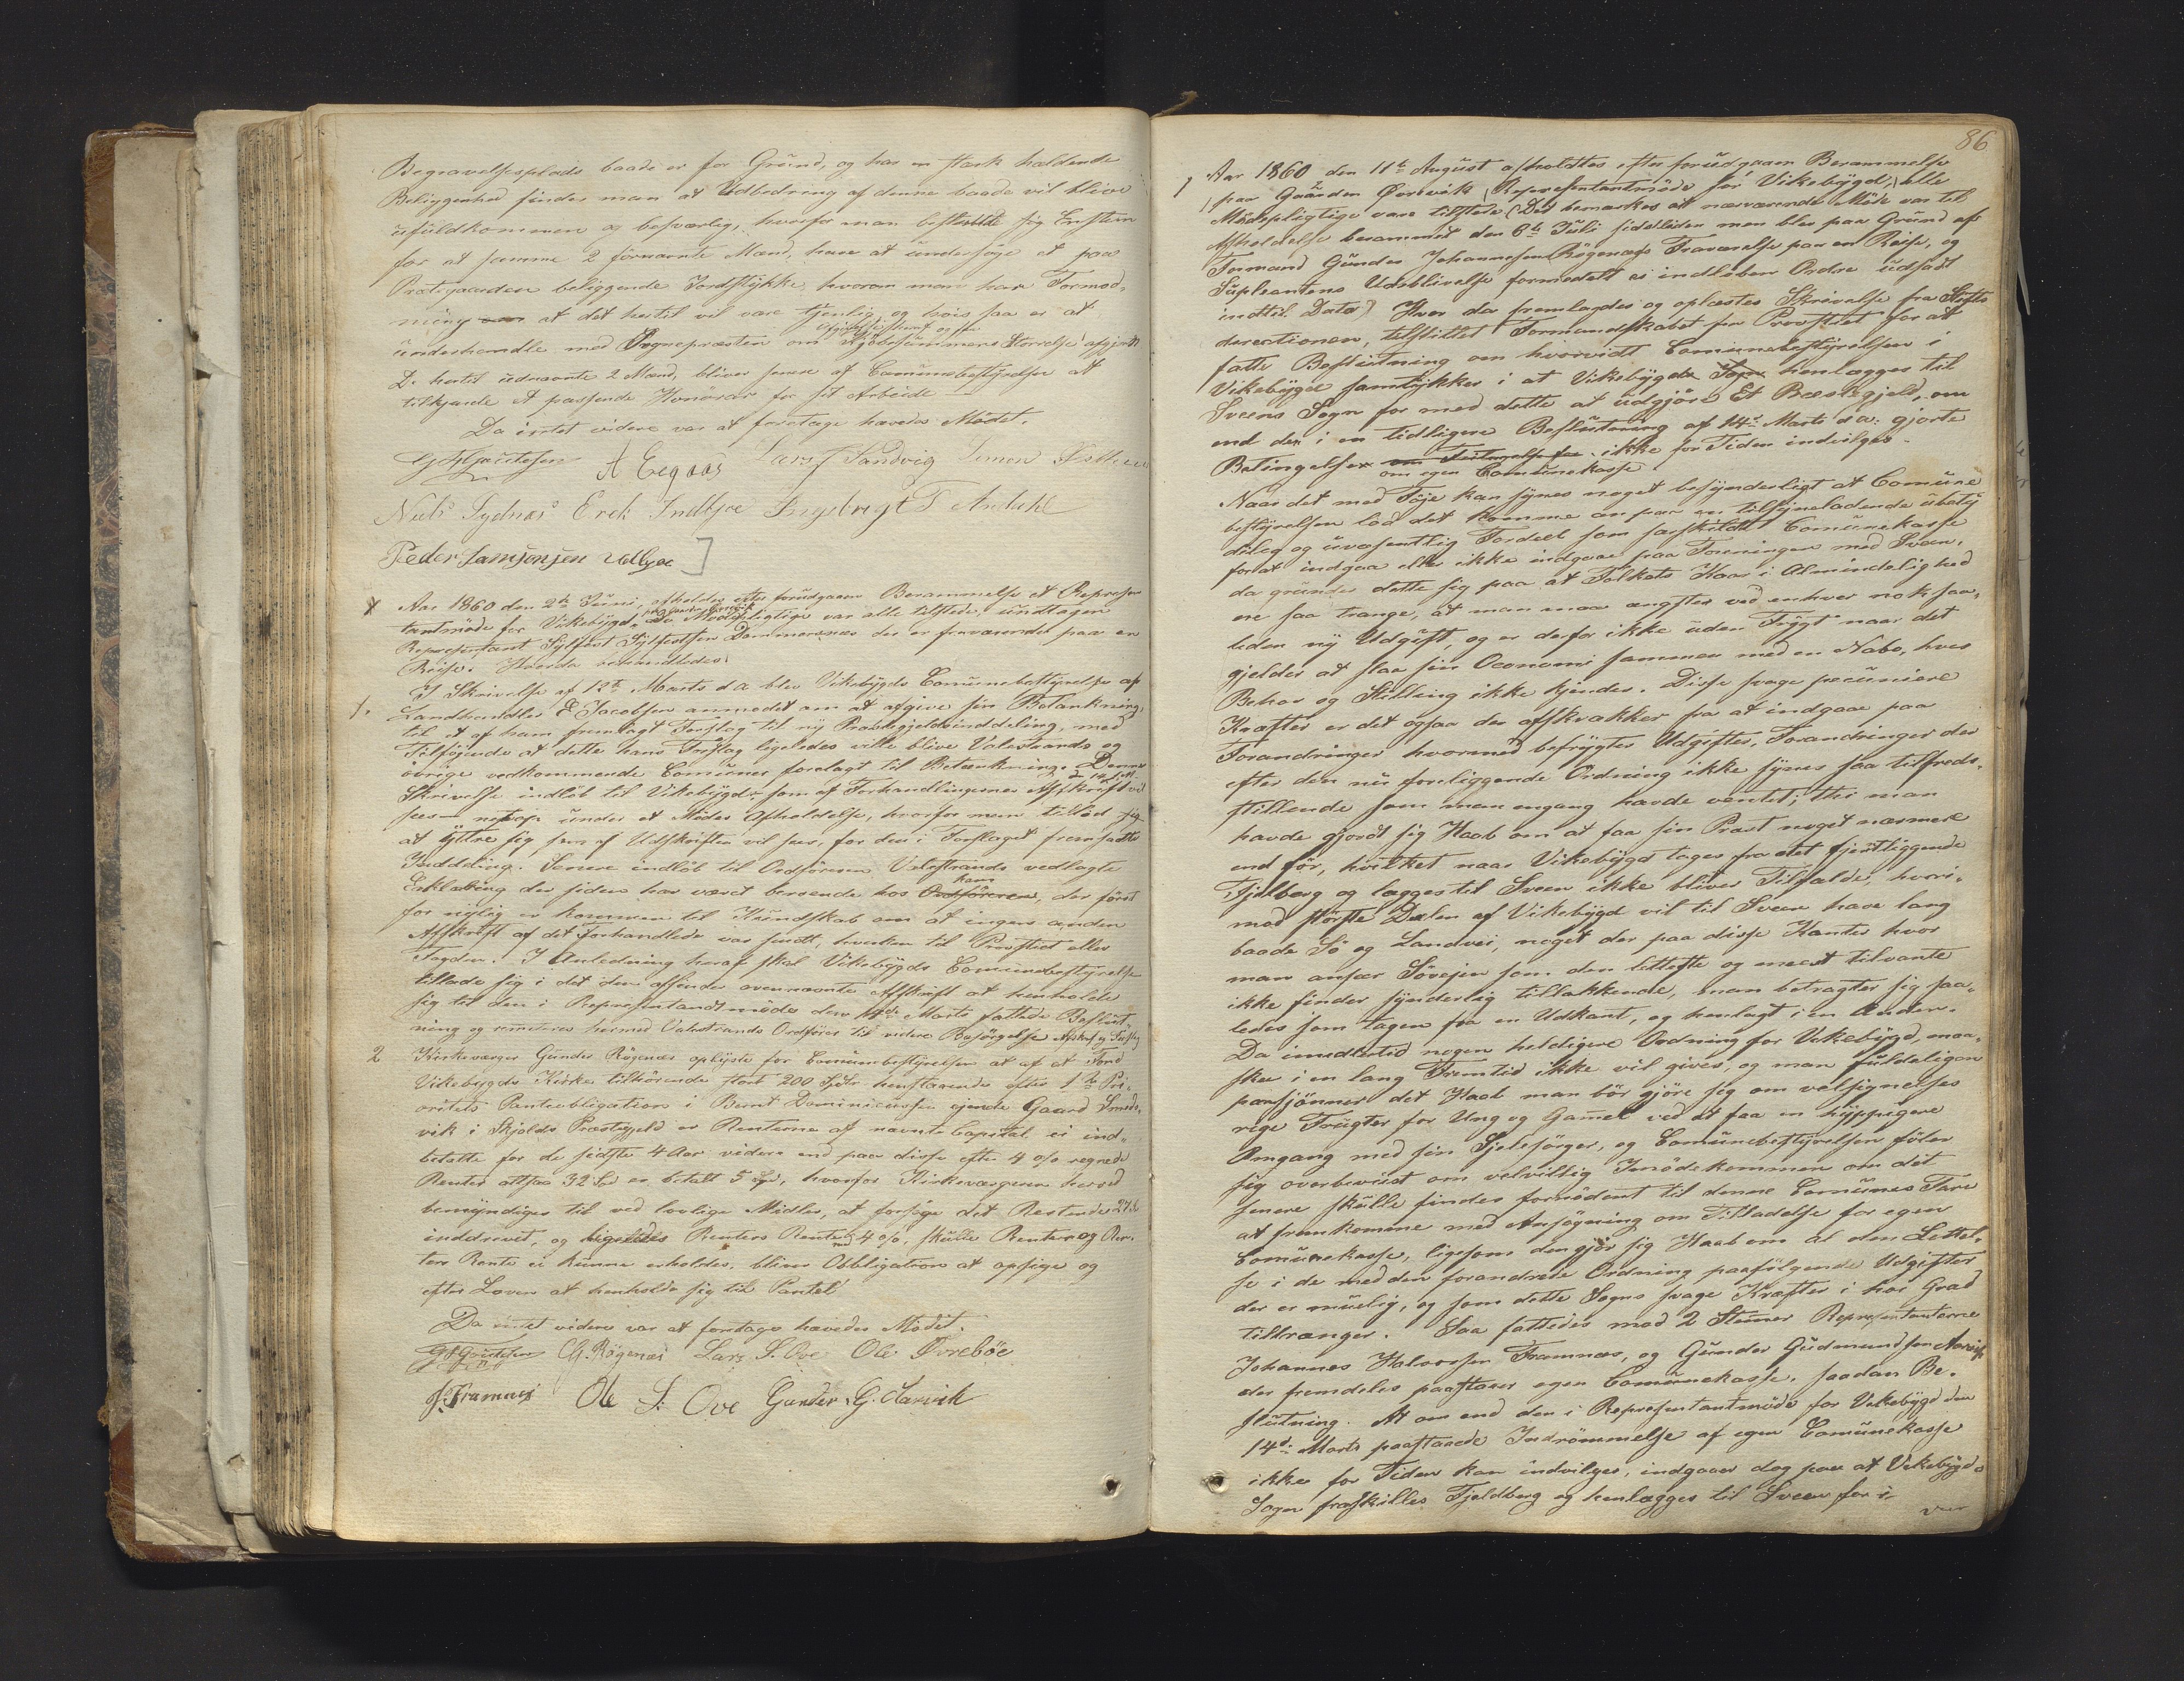 Begravelsesplads baade er for Grund, og har en stærk haldende
Beliggenhed finder man at Udbedring af denne baade vil blive
ufuldkommen og besværlig, hvorfor man besluttede sig
for at samme 2 förnævnte Mænd, have at undersöge et paa
Præstegaarden beliggende Jordstykke, hvorom man har Formod,
ning at det hertil vil være tjenlig, og hvis saa er at
underhandle med Sognepræsten om Kjöbesummens Störrelse afgjort
De hertil udnævnte 2 Mænd, bliver senere af Comunebestyrelsen at
tilkjende et passende Honorar for sit Arbeide
Da intet videre var at foretage hævedes Mödet.
A Eegaas Lars J Sandvig Simon
Niels Sydnæs Erek Indbjoe Ingebrigt T Andahl
Peder Samsonsen Valbye
Aar 1860 den 2de Juni, afholdes efter forudgaaen Berammelse et Represen
tantmöde for Vikebygd, Da Mödepligtige var alle tilstede, undtagen
Representant Sylfest Sylfestsen Dommersnæs der er fraværende paa en
Reise. Hvorda behandledes:
1. I Skrivelse af 12te Marts d A blev Vikebygds Comunebestyrelse af
Landhandler E Jacobsen anmodet om at afgive sin Betænkning
til et af ham fremlagt Forslag til ny Præstegjeldsinddeling, med
Tilföjende at dette hans Forslag ligeledes ville blive Valestrands og
övrige vedkommende Comuner forelagt til Betænkning. Denne
Skrivelse indlöb til Vikebygd som af Forhandlingernes Afskrift vil
sees netop under et Mödes Afholdelse, hvorfor man tillod sig
at yttre sig som af Udskriften vil sees, for den i Forslaget fremsatte
Inddeling. Senere indlöb til Ordföreren Valestrands vedlagte
Erklæring der siden har været beroende hos ham, der först
for nylig er kommen til Kundskab om at ingen anden
Afskrift af det Forhandlede var sendt, hverken til Provstiet eller
Fogden. I Anledning heraf skal Vikebygds Comunebestyrelse
tillade sig i det den afsender ovennævnte Afskrift at henholde
sig til den i Representandtmöde den 14de Marts fattede Beslut
ning og remitteres hermed Valestrands Ordförer til videre Besörgelse
2 Kirkeværger Gunder Rögenæs oplyste for Comunebestyrelsen at af et Fond
Vikebygds Kirke tilhörende stort 200 Spdlr henstaaende efter 1te Pri,
oritets Panteobligation i Bernt Dominicussen ejende Gaard
vik i Skjolds Præstegjeld er Renterne af nævnte Capital ei ind,,
betalte for de sidste 4 Aar videre end paa disse efter 4 o/o regnede
Renter altsaa 32 Spd er betalt 5 Spd, hvorfor Kirkeværgeren herved
bemyndiges til ved lovlige Midler, at forsöge det Restende 27
inddrevet, og ligeledes Renters Rente med 4 o/o, skulde Renter og Ren,
ters Rente ei kunne erholdes, bliver Obbligation at opsige og
efter Loven at henholde sig til Pantet
Da intet videre var at foretage hævedes Mödet.
G. Rögenæs Lars S. Ove Ole Övreböe
J. Framnes Ole S. Ove Gunder G. Aarvik
86
Aar 1860 den 11te August afholdtes efter forudgaaen Berammelse
1 paa Gaarden Örevik Representantmöde for Vikebygd, alle
Mödepligtige vare tilstede (Det bemærkes at nærværende Möde var til
Afholdelse berammet den 6te Juli sidstleden men blev paa Grund af
Formand Gunder Johannesen Rögenæs Fraværelse paa en Reise, og
Supleantens Udeblivelse formedelst ei indloben Ordre udsadt
indtil Dato) Hvor da fremlagdes og oplæstes Skrivelse fra Stifts
derectionen, tilstillet Formandskabet fra Provstiet for at
fatte Beslutning om hvorvidt Comunebestyrelsen i
Vikebygd samtykker i at Vikebygds Sogn henlægges til
Sveens Sogn for med dette at udgjöre Et Præstegjeld, om
end den i en tidligere Beslutning af 14de Marts d A: gjorte
Betingelse om egen Comunekasse ikke for Tiden indvilges.
Naar det med Föje kan synes noget besynderligt at Comune
bestyrelsen lod det komme an paa en tilsyneladende ubety
delig og uvæsentlig Fordeel som særskildt Comunekasse
for at indgaa eller ikke indgaa paa Foreningen med Sveen,
da grunder dette sig paa at Folkets Kaar i Almindelighed
ere saa trange, at man maa ængstes ved enhver nok saa,
leden ny Udgift, og er derfor ikke uden Frygt naar det
gjelder at slaa sin Oeconomi sammen med en Nabo, hves
Behov og Stilling ikke kjendes. Disse svage pecuniære
Kræfter er det ogsaa der afskrækker fra at indgaae paa
Forandringer hvormed befrygtes Udgifter, Forandringer der
efter den nu foreliggende Ordning ikke synes saa tilfreds,
stillende som man engang havde ventet; thi man
havde gjordt sig Haab om at faa sin Præst noget nærmere
end för, hvilket naar Vikebygd tages fra det fjerntliggende
Fjelberg og lægges til Sveen ikke bliver Tilfælde, hvori,
mod störste Delen af Vikebygd vil til Sveen have lang
baade Sö og Landvei, noget der paa disse Kanter hvor
man anseer Söveien som den letteste og meest tilvante
ikke finder synderlig tillokkende, man betragter sig saa,
ledes som tagen fra en Udkant, og henlagt i en Anden.
Da imidlertid nogen heldigere Ordning for Vikebygd, maa,
skee i en lang Fremtid ikke vil gives, og man fuldeligen
paaskjönner det Haab man bör gjöre sig om velsignelses
rige Frugter for Ung og Gamel ved at faa en hyppigere
Omgang med sin Sjelesörger, og Comunebestyrelsen föler
sig overbeviist om velvillig Imödekommen om det
senere skulle findes fornödent til denne Comunes Tarv
at fremkomme med Ansögning om Tilladelse for egen
Comunekasse, ligesom den gjör sig Haab om al den Lettel,
se i de med den forandrede Ordning paafölgende Udgifter
der er muelig, og som dette Sogns svage Kræfter i höi Grad
tiltrænger. Saa fattedes mod 2 Stemer Representanterne
Johannes Halvorsen Framnæs, og Gunder Gudmundsen Aarvik
der fremdeles paastaaer egen Comunekasse, saadan Be,
slutning. At om end den i Representantmöde for Vikebygd den
14de Marts paastaaede Indrömmelse af egen Comunekasse
ikke for Tiden kan indvilges, indgaaes dog paa at Vikebygds
Sogn fraskilles Fjeldberg og henlægges til Sveen for i,
ver